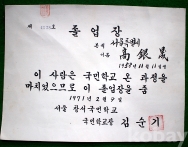 졸업장
본적 서울특별시
이름 高銀晟
1958년 11월 11일생
이 사람은 국민학교 온 과정을
마치었으므로 이 졸업장을 줌
1971년 2월 9일
국민학교장 김순기